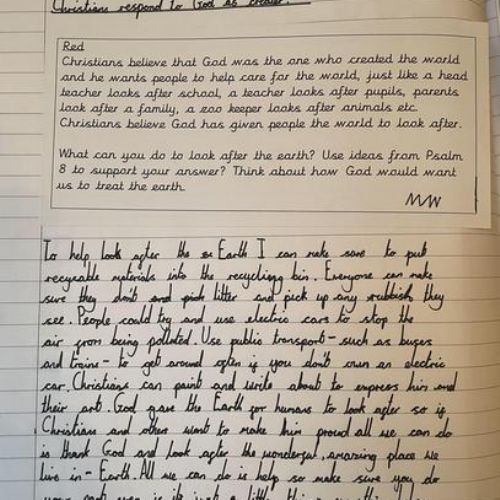 Christians respond to God as creator.
Red
Christians believe that God was the one who created the world
and he wants people to help care for the world, just like a head
teacher looks after school, a teacher looks after pupils, parents
look after a family, a zoo keeper looks after animals etc.
Christians believe God has given people the world to look after.
What can you do to look after the earth? Use ideas from Psalm
8 to support your answer? Think about how God would want
us to treat the earth.
MW
To help look after the Earth I can make sure to put
recycable materials into the recycling bin. Everyone can make
sure they don't and pick litter and pick up any rubbish they
see. People could try and use electric cars to stop the
air from being polluted. Use public transport - such as buses
and trains - to get around often if you don't own an electric
car. Christians can paint and write about to express him and
their art. God gave the Earth for humans to look after so if
Christians and others want to make him proud all we can do
is thank God and look after the wonderful, amazing place we
live in - Earth. All we can do is help so make sure you do
your even if it's just a little thing